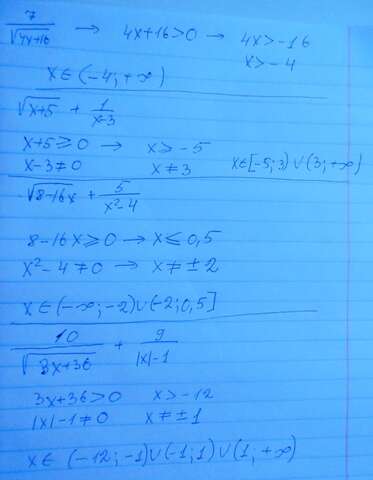 7/√(4x+16) → 4x+16>0 → 4x>-16
x>-4
x∈(-4;+∞)
√(x+5) + 1/(x-3)
x+5≥0 → x>-5
x-3≠0 x≠3 x∈[-5;3)∪(3;+∞)
√(8-16x) + 5/(x²-4)
8-16x≥0 → x≤0,5
x²-4≠0 → x≠±2
x∈(-∞;-2)∪(-2;0,5]
10/√(3x+36) + 9/(|x|-1)
3x+36>0 x>-12
|x|-1≠0 x≠±1
x∈(-12;-1)∪(-1;1)∪(1;+∞)